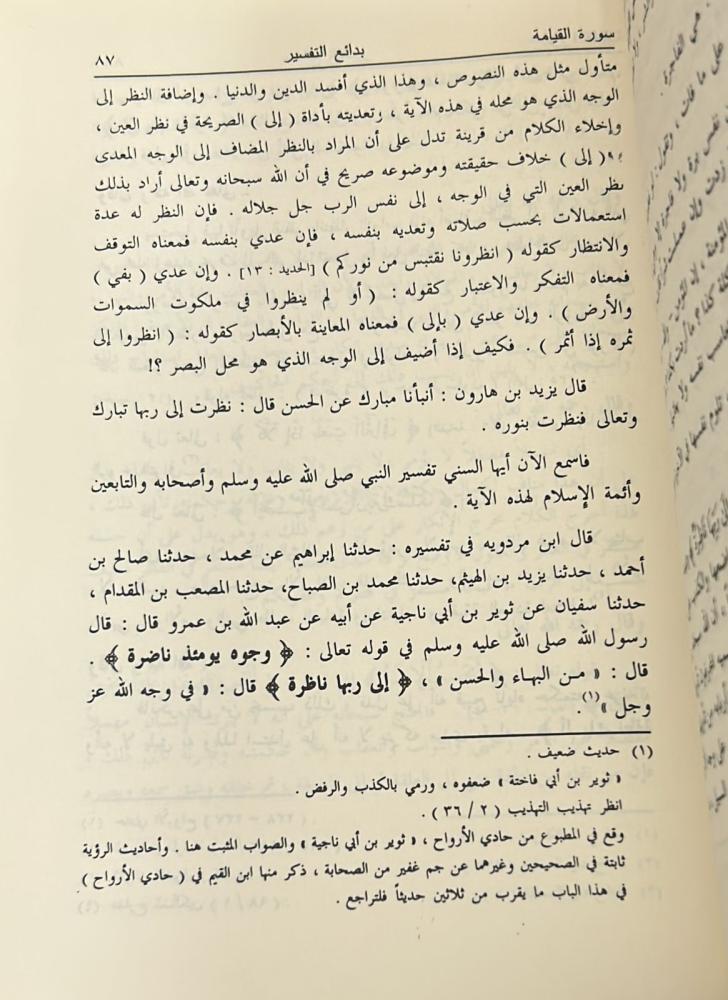 سورة القيامة
بدائع التفسير
٨٧
متأول مثل هذه النصوص ، وهذا الذي أفسد الدين والدنيا . وإضافة النظر إلى
الوجه الذي هو محله في هذه الآية ، وتعديته بأداة ( إلى ) الصريحة في نظر العين ،
وإخلاء الكلام من قرينة تدل على أن المراد بالنظر المضاف إلى الوجه المعدى
( إلى ) خلاف حقيقته وموضوعه صريح في أن الله سبحانه وتعالى أراد بذلك
نظر العين التي في الوجه ، إلى نفس الرب جل جلاله . فإن النظر له عدة
استعمالات بحسب صلاته وتعديه بنفسه ، فإن عدي بنفسه فمعناه التوقف
والانتظار كقوله ( انظرونا نقتبس من نوركم ) [الحديد : ١٣] . وإن عدي ( بفي )
فمعناه التفكر والاعتبار كقوله : ( أو لم ينظروا في ملكوت السموات
والأرض ) . وإن عدي ( بإلى ) فمعناه المعاينة بالأبصار كقوله : ( انظروا إلى
ثمره إذا أثمر ) . فكيف إذا أضيف إلى الوجه الذي هو محل البصر ؟!
قال يزيد بن هارون : أنبأنا مبارك عن الحسن قال : نظرت إلى ربها تبارك
وتعالى فنظرت بنوره .
فاسمع الآن أيها السني تفسير النبي صلى الله عليه وسلم وأصحابه والتابعين
وأئمة الإسلام لهذه الآية .
قال ابن مردويه في تفسيره : حدثنا إبراهيم عن محمد ، حدثنا صالح بن
أحمد ، حدثنا يزيد بن الهيثم، حدثنا محمد بن الصباح، حدثنا المصعب بن المقدام ،
حدثنا سفيان عن ثوير بن أبي ناجية عن أبيه عن عبد الله بن عمرو قال : قال
رسول الله صلى الله عليه وسلم في قوله تعالى : ﴿ وجوه يومئذ ناضرة ﴾ .
قال : « من البهاء والحسن » ، ﴿ إلى ربها ناظرة ﴾ قال : « في وجه الله عز
وجل »(١).
(١) حديث ضعيف .
« ثوير بن أبي فاختة » ضعفوه ، ورمي بالكذب والرفض .
انظر تهذيب التهذيب ( ٢ / ٣٦ ) .
وقع في المطبوع من حادي الأرواح ، « ثوير بن أبي ناجية » والصواب المثبت هنا . وأحاديث الرؤية
ثابتة في الصحيحين وغيرهما عن جم غفير من الصحابة ، ذكر منها ابن القيم في ( حادي الأرواح )
في هذا الباب ما يقرب من ثلاثين حديثاً فلتراجع .